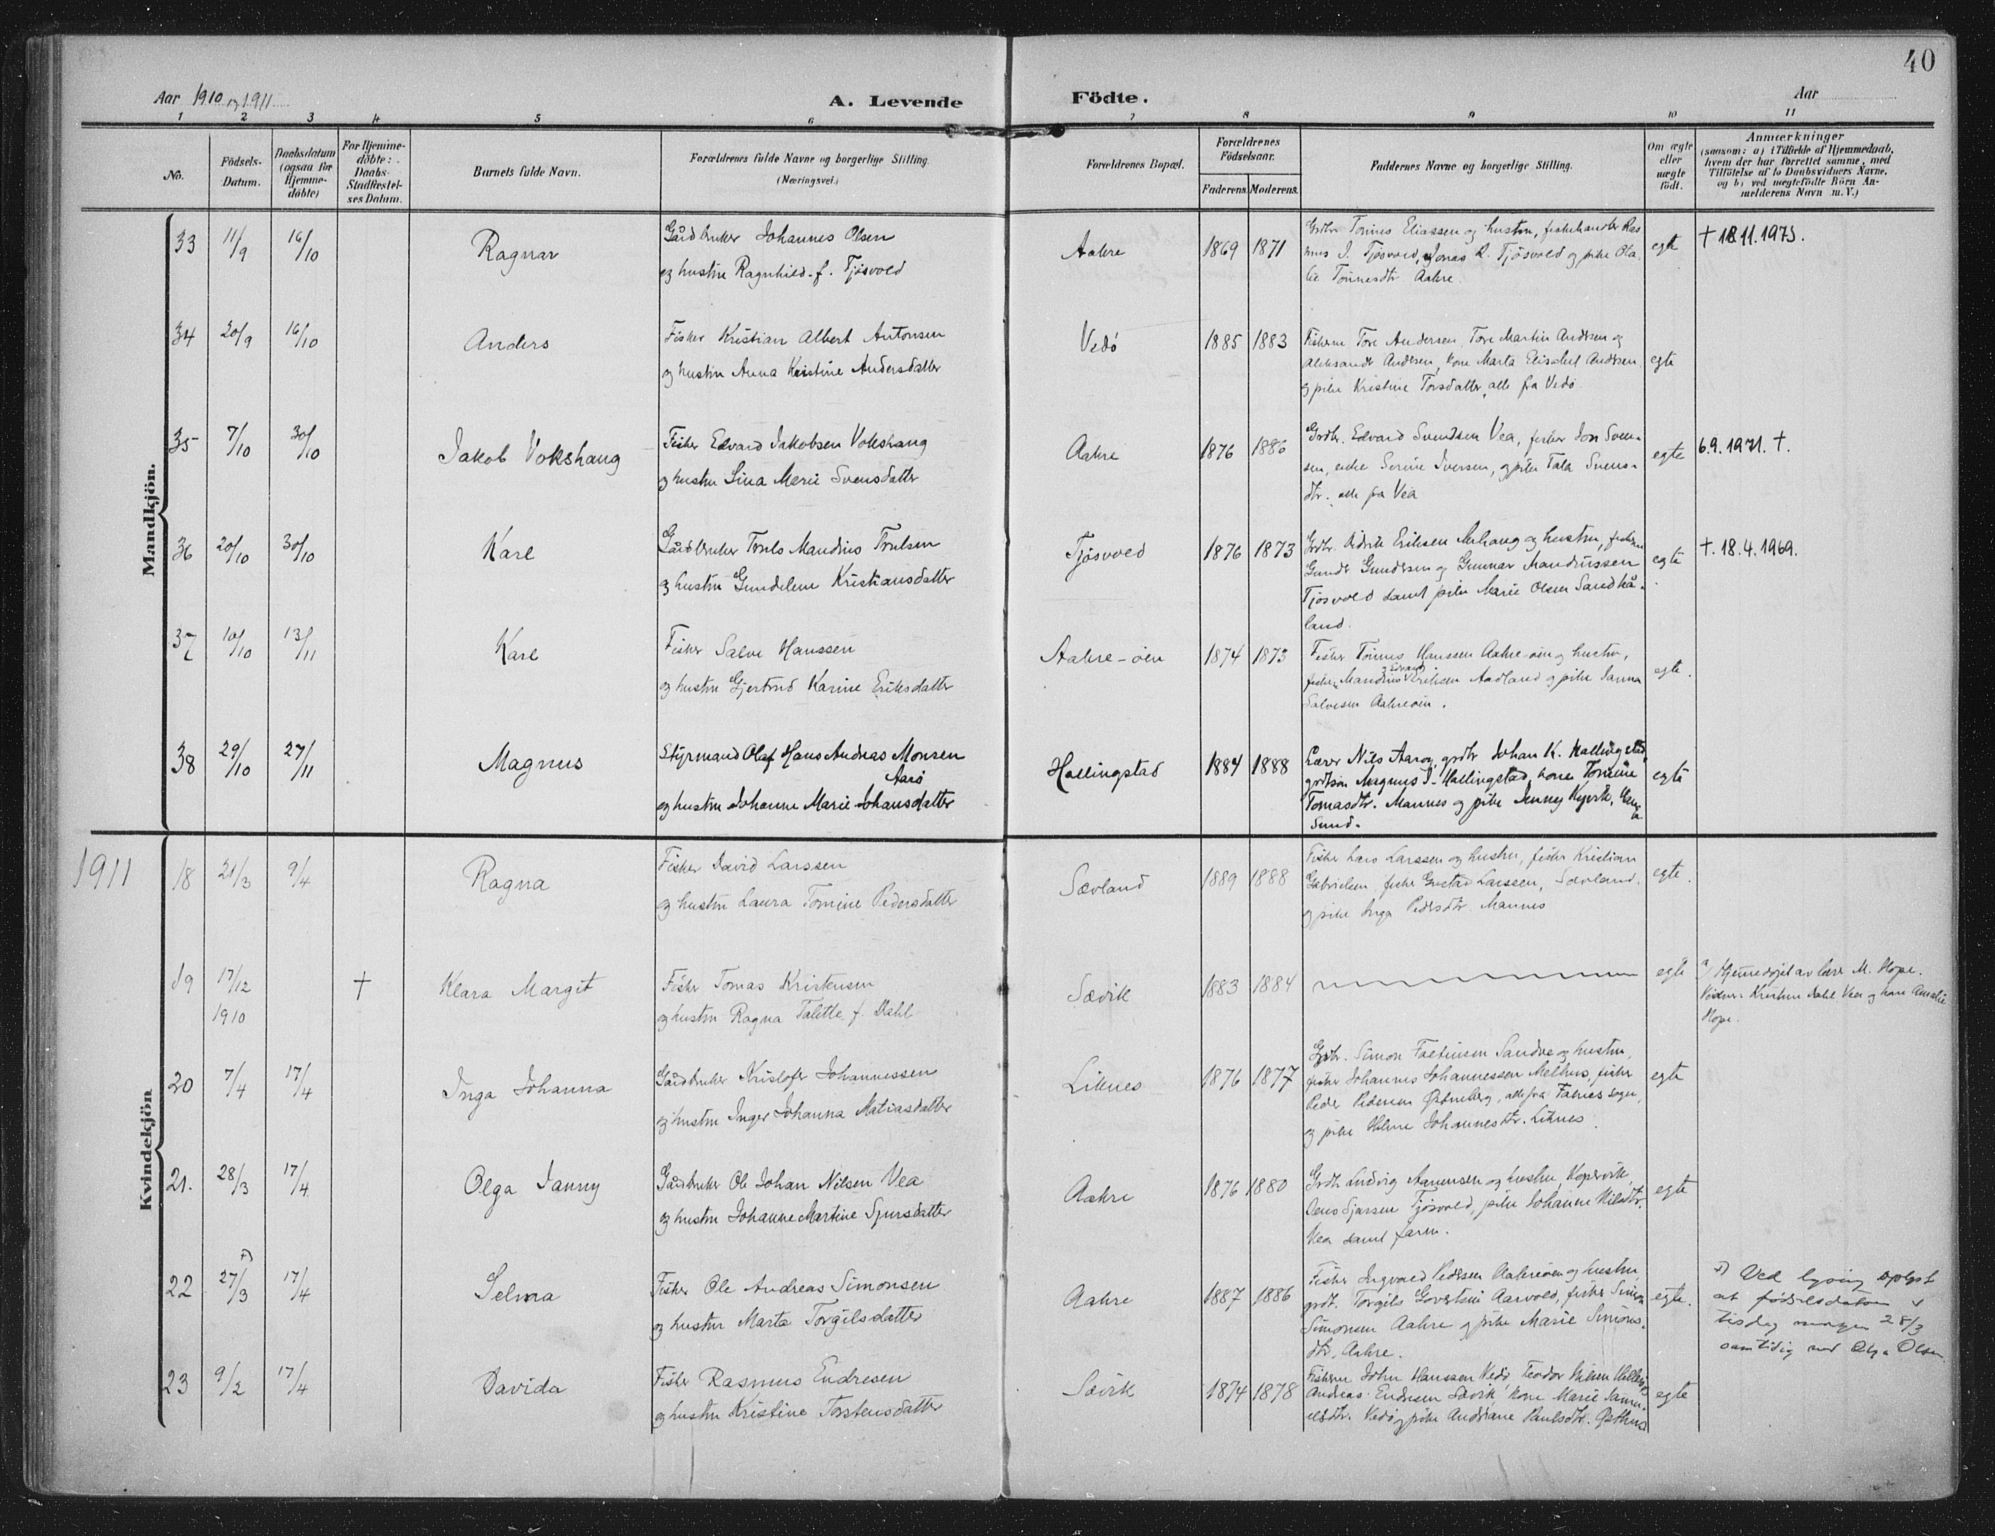 40
Aar 1910 og 1911
A. Levende
Födte.
Aar
1 2 3 4 5 6 7 8 9 10 11
No.
Födsels-
Datum.
Daabsdatum
(ogsaa for
Hjemme-
döbte)
For Hjemme-
döbte:
Daabs-
Stadfæstel-
ses Datum.
Barnets fulde Navn.
Forældrenes fulde Navne og borgerlige Stilling.
(Næringsvei.)
Forældrenes Bopæl.
Forældrenes
Födselsaar.
Faderens. Moderens.
Faddernes Navne og borgerlige Stilling.
Om ægte
eller
uægte
födt.
Anmærkninger
(saasom: a) i Tilfælde af Hjemmedaab,
hvem der har forrettet samme, med
Tilföielse af to Daabsvidners Navne,
og b) ved uægtefödte Börn An-
melderens Navn m. V.)
Mandkjön.
33 11/9 16/10 Ragnar
Gårdbruker Johannes Olsen
og hustru Ragnhild f. Tjösvold
Aakre 1869 1871
Grdbr Tönnes Eliassen og hustru, fiskehandler Ras
mus J. Tjösvold, Jonas R. Tjösvold og pike Ola
Tönnesdtr Aakre.
egte
† 18.11.1975.
34 20/9 16/10 Anders
Fisker Kristian Albert Antonsen
og hustru Anna Kristine Andersdatter
Vedö 1885 1883
Fiskerne Tore Andersen, Tore Martin Andersen og
Aleksander Andersen, kone Marta Elisabet Andersen
og pike Kristine Torsdatter, alle fra Vedö.
egte
35 7/10 30/10 Jakob Vokshaug
Fisker Edvard Jakobsen Vokshaug
og hustru Lina Marie Svensdatter
Aakre 1876 1886
Grdbr. Edvard Svendsen Vea, fisker Jon Sven-
sen, enke Serine Iversen, og pike Tala Svens-
dtr. alle fra Vea
egte
6.9.1971. †.
36 20/10 30/10 Karl
Gårdbruker Truls Mandius Trulsen
og hustru Gundeline Kristiansdatter
Tjösvold 1876 1873
Grdbr. Didrik Eriksen Aahaug og hustru, fiskerne
Gunder Gundersen og Gunnar Mandiussen
Tjösvold samt pike Marie Olsen Sandhå-
land.
egte
†. 18.4.1969.
37 10/10 13/11 Karl
Fisker Salve Hanssen
og hustru Gjertrud Karine Eriksdatter
Aakre-öen 1874 1873
Fisker Tönnes Hanssen Aakre-öen og hustru,
fisker Mandius Edvard Eriksen Aadland og pike Janna
Salvesen Aakreöen.
egte.
38 29/10 27/11 Magnus
Styrmand Olaf Hans Andreas Monsen
Aarö
og hustru Johanne Marie Johansdatter
Hallingstad 1884 1888
Lærer Nils Aarö, grdbr Johan K. Hallingstad,
Magnus J. Hallingstad, kone Tomine
Tomasdtr. Mannes og pike Jenny Kyvik, Hauge
sund.
egte
1911
Kvindekjön
18 21/3 9/4 Ragna
Fisker David Larssen
og hustru Laura Tomine Pedersdatter
Sævland 1889 1888
Fisker Lars Larssen og hustru, fisker Kristian
Gabrielsen, fisker Gustav Larssen, Sævland
og pike Inga Pedersdtr. Mannes
egte.
19 17/12 † Klara Margit
1910
Fisker Tomas Kristensen
og hustru Ragna Talette f. Dahl
Sævik 1883 1884
egte
Hjemmedöpt av lærer M. Hope.
Vidner: Kristen Dahl, Vea og kone Amalie
Hope.
20 7/4 17/4 Inga Johanna
Gårdbruker Kristofer Johannessen
og hustru Inger Johanna Matiasdatter
Liknes 1876 1877
Grdbr. Simon Faltinsen Sandve og hustru,
fisker Johannes Johannessen Melhus, fisker
Peder Pedersen Östreberg, alle fra Falnes sogn,
og pike Helene Johannesdtr. Liknes.
egte
21. 28/3 17/4 Olga Janny
Gårdbruker Ole Johan Nilsen Vea
og hustru Johanne Martine Sjursdatter
Aakre 1876 1880
Grdbr Ludvig Aanensen og hustru, Kopervik,
Sjursen Tjösvold, pike Johanne Nilsdtr.
Vea samt faren.
egte
22 27/3 17/4 Selma
Fisker Ole Andreas Simonsen
og hustru Marta Torgilsdatter
Aakre 1887 1886
Fisker Ingvald Pedersen Aakreöen og hustru
grdbr. Torgils Govertsen Aarvold, fisker Simon
Simonsen Aakre og pike Marie Simons-
dtr. Aakre.
egte.
Ved lysing oplyst
at födselsdatoen
tirsdag morgen 28/3
samtidig med Olga Olsen
23 9/2 17/4 Davida
Fisker Rasmus Endresen
og hustru Kristine Torstensdatter
Sævik 1874 1878
Fiskerne John Hanssen Vedö Teodor Nilsen
Andreas Endresen Sævik, kone Marie Samu-
elsdtr. Vedö og pike Andreane Paulsdtr. Östhus
egte